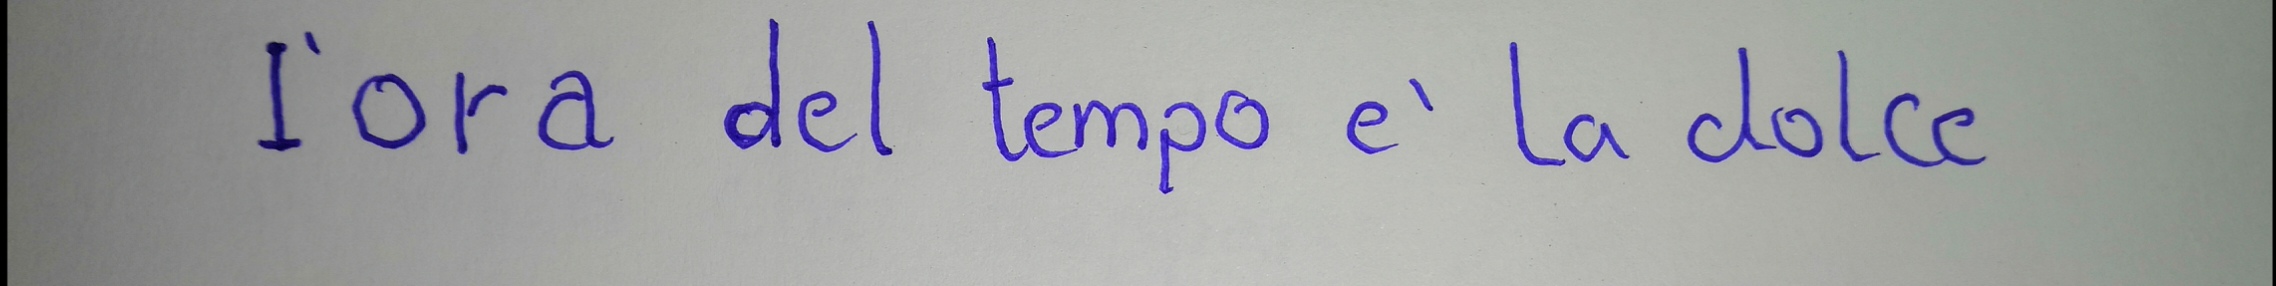 l'ora del tempo e' la dolce